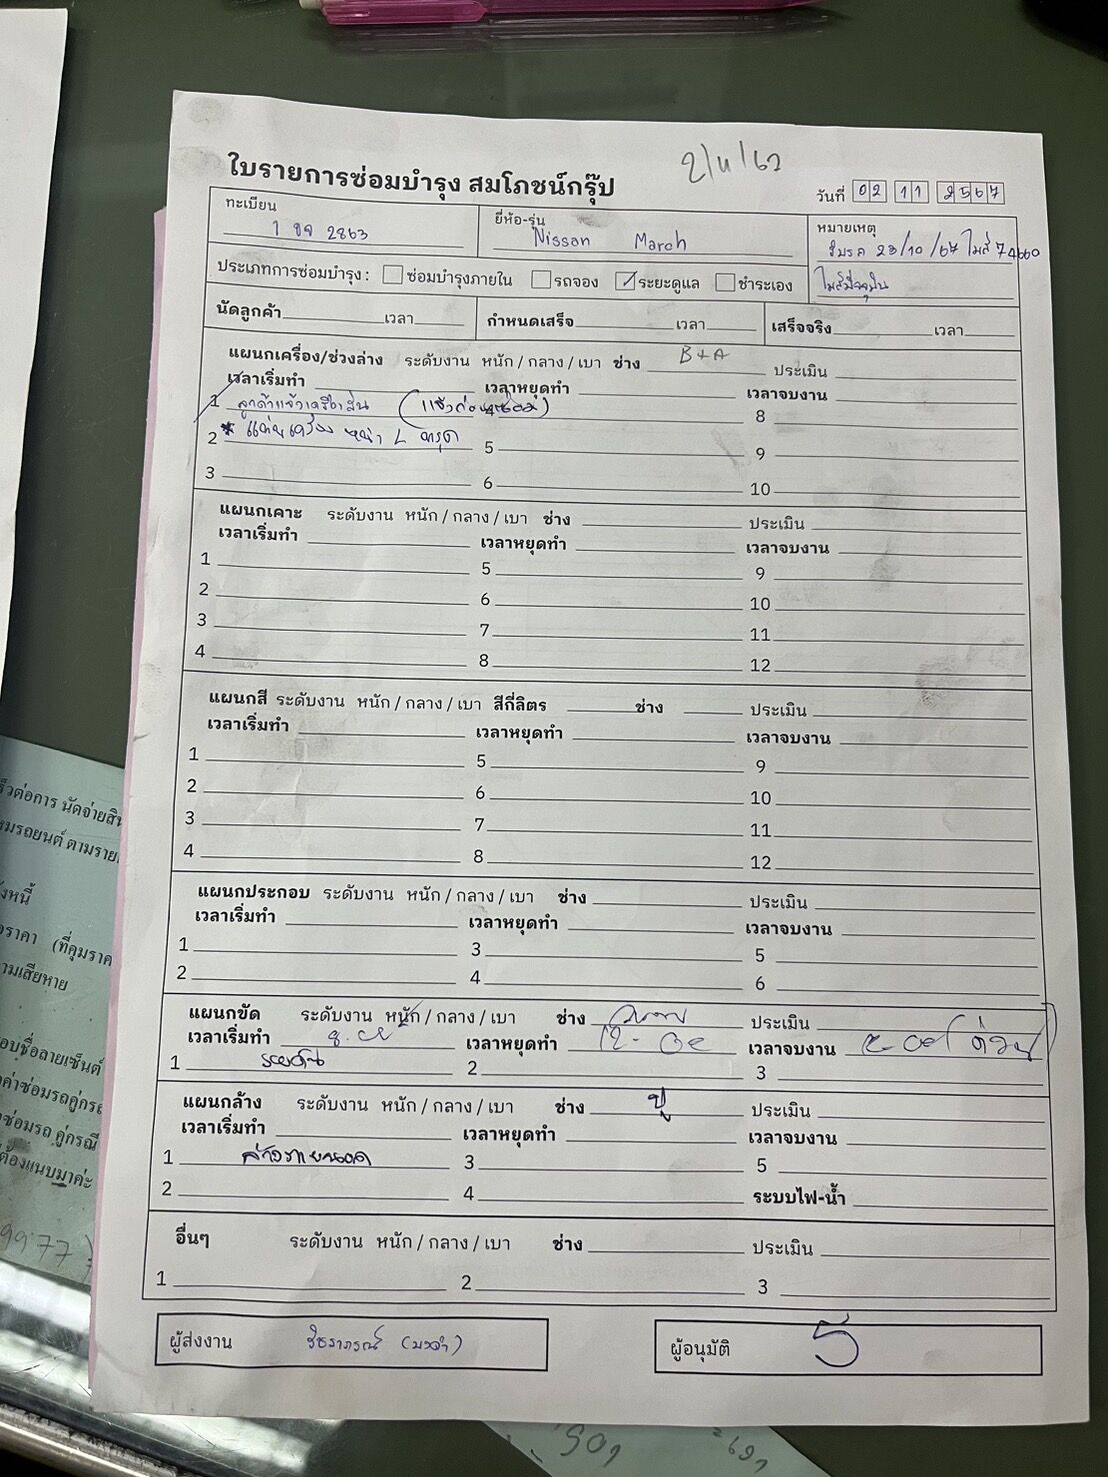 2/11/67
ใบรายการซ่อมบำรุง สมโภชน์กรุ๊ป
วันที่ 02 11 2567
ทะเบียน
2863
ยี่ห้อ-รุ่น
Nissan March
หมายเหตุ
23/10/67 ไมล์ 74660
ไมล์ปัจจุบัน
ประเภทการซ่อมบำรุง : ซ่อมบำรุงภายใน รถจอง ระยะดูแล ชำระเอง
นัดลูกค้า เวลา กำหนดเสร็จ เวลา เสร็จจริง เวลา
แผนกเครื่อง/ช่วงล่าง ระดับงาน หนัก / กลาง / เบา ช่าง B+A ประเมิน
เวลาเริ่มทำ เวลาหยุดทำ เวลาจบงาน
1 ลูกค้าแจ้งเครื่องสั่น 8
2 * แท่นเครื่อง หน้า L ทรุด 5 9
3 6 10
แผนกเคาะ ระดับงาน หนัก / กลาง / เบา ช่าง ประเมิน
เวลาเริ่มทำ เวลาหยุดทำ เวลาจบงาน
1 5 9
2 6 10
3 7 11
4 8 12
แผนกสี ระดับงาน หนัก / กลาง / เบา สีกี่ลิตร ช่าง ประเมิน
เวลาเริ่มทำ เวลาหยุดทำ เวลาจบงาน
1 5 9
2 6 10
3 7 11
4 8 12
แผนกประกอบ ระดับงาน หนัก / กลาง / เบา ช่าง ประเมิน
เวลาเริ่มทำ เวลาหยุดทำ เวลาจบงาน
1 3 5
2 4 6
แผนกขัด ระดับงาน หนัก / กลาง / เบา ช่าง ประเมิน
เวลาเริ่มทำ เวลาหยุดทำ เวลาจบงาน
1 2 3
แผนกล้าง ระดับงาน หนัก / กลาง / เบา ช่าง ปู ประเมิน
เวลาเริ่มทำ เวลาหยุดทำ เวลาจบงาน
1 3 5
2 4 ระบบไฟ-น้ำ
อื่นๆ ระดับงาน หนัก / กลาง / เบา ช่าง ประเมิน
1 2 3
ผู้ส่งงาน
ผู้อนุมัติ